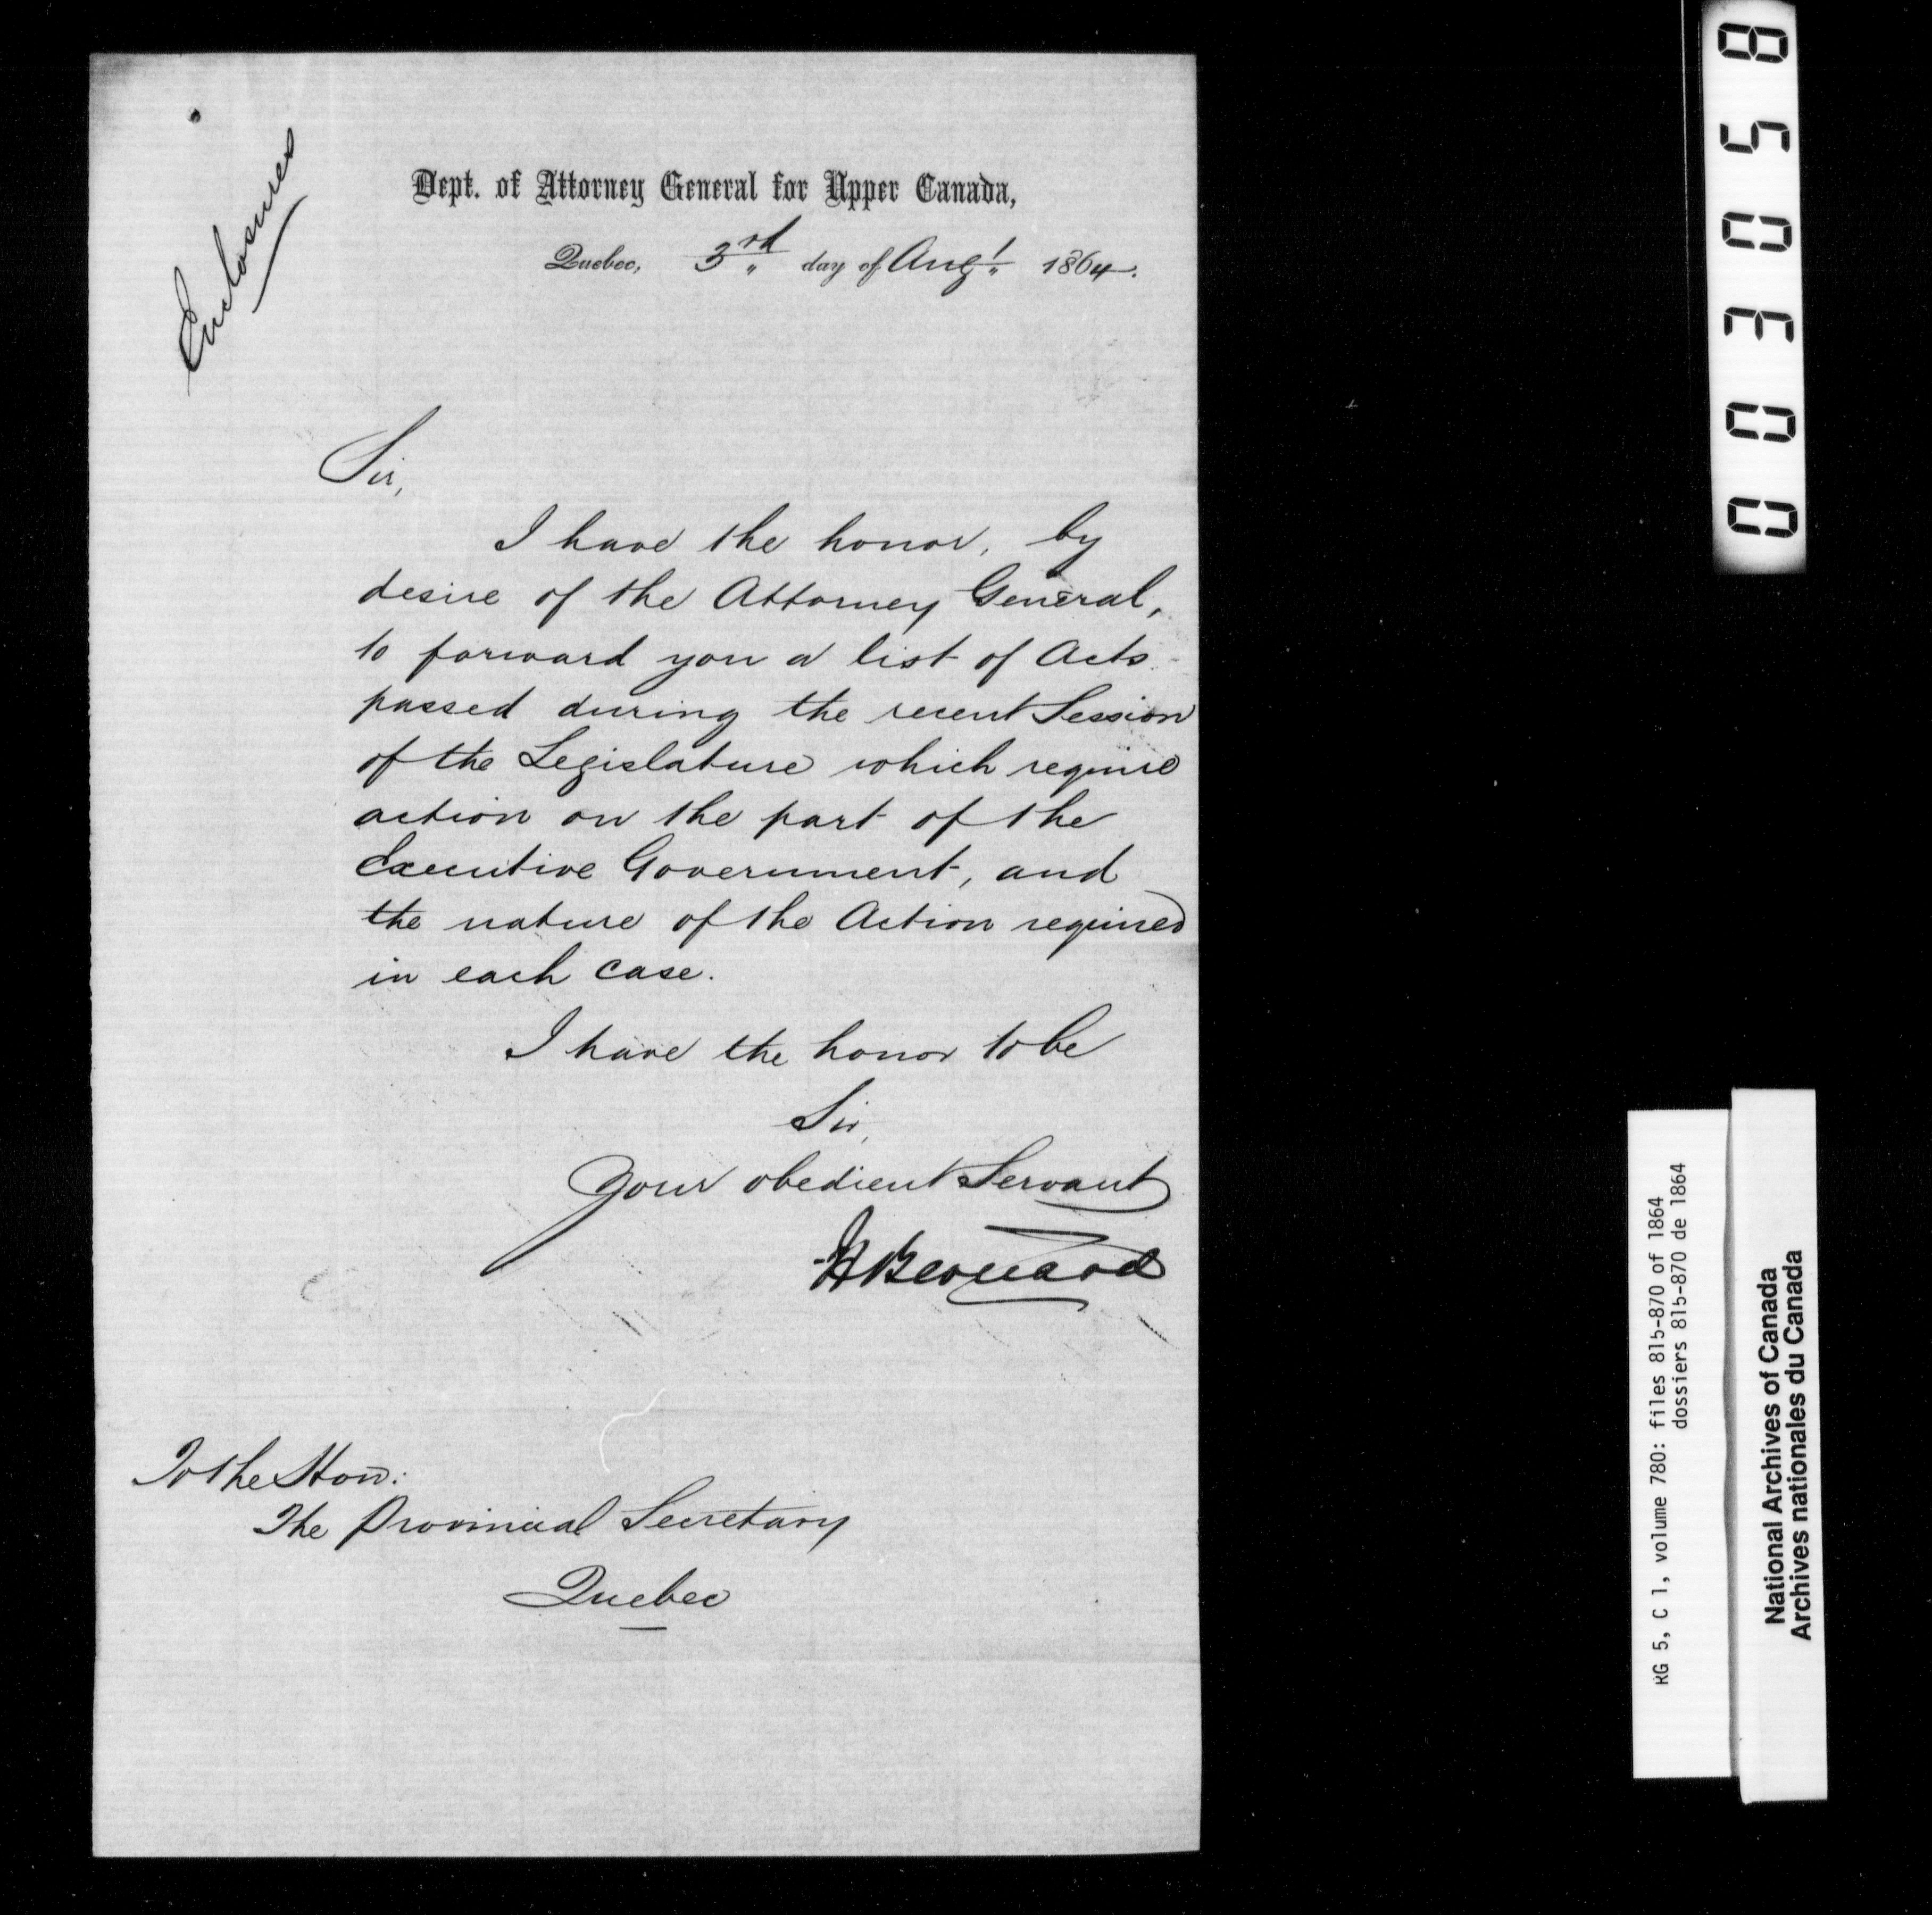 Enclosures
Dept. of Attorney General for Upper Canada,
Quebec, 3rd day of Augt 1864.
Sir,
I have the honor, by
desire of the Attorney General,
to forward you a list of Acts
passed during the recent Session
of the Legislature which require
action on the part of the
Executive Government, and
the nature of the Action required
in each case.
I have the honor to be
Sir,
Your obedient Servant
H Bernard
To the Hon:
The Provincial Secretary
Quebec
000 3058
RG 5, C 1, volume 780: files 815-870 of 1864
dossiers 815-870 de 1864
National Archives of Canada
Archives nationales du Canada